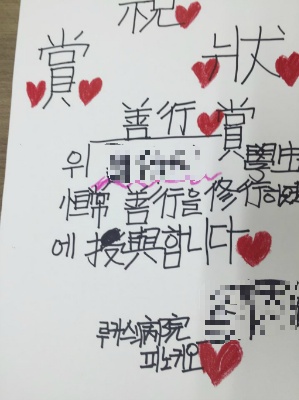 祝
賞 狀
善行賞
위 學生
恒常 善行을 修行하였
에 授與합니다
루카스病院
피노키오